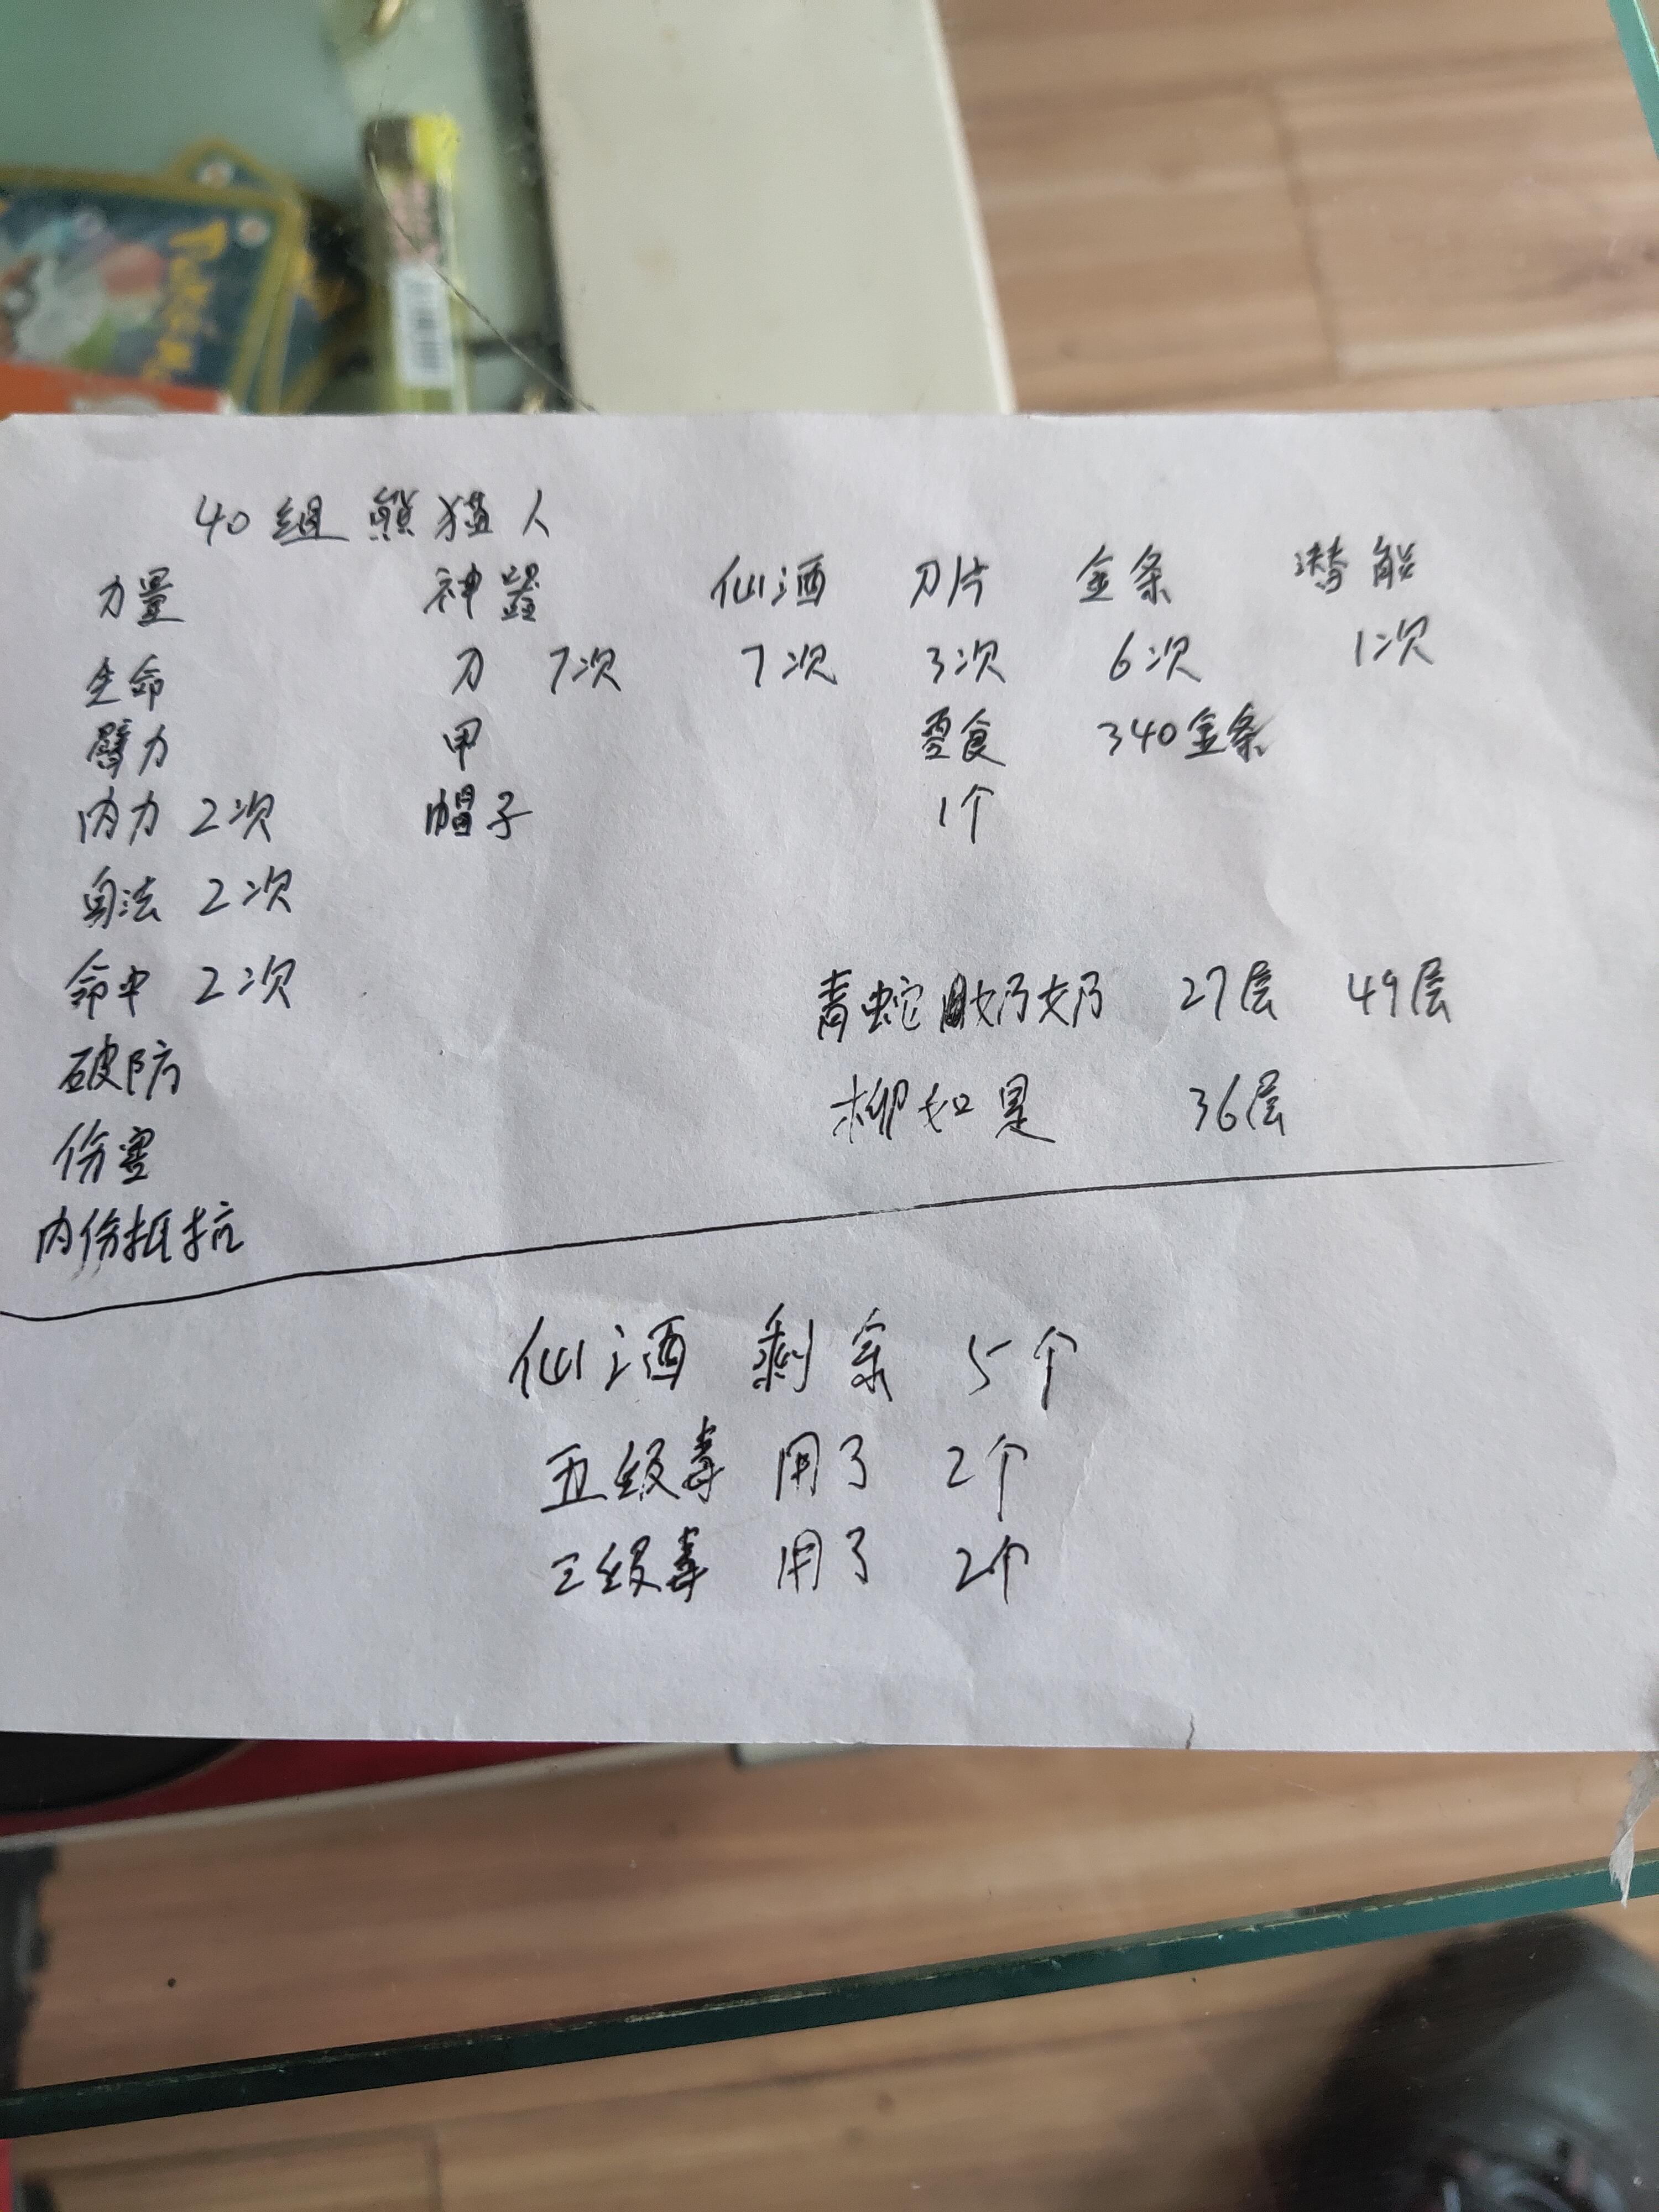 Pokém
40组 熊猫人
力量 神器 仙酒 刀片 金条 潜能
生命 刀 7次 7次 3次 6次 1次
臂力 甲 零食 340金条
内力 2次 帽子 1个
身法 2次
命中 2次 青蛇 奶奶 27层 49层
破防 柳如是 36层
伤害
内伤抵抗
仙酒 剩余 5个
五级毒 用了 2个
三级毒 用了 2个